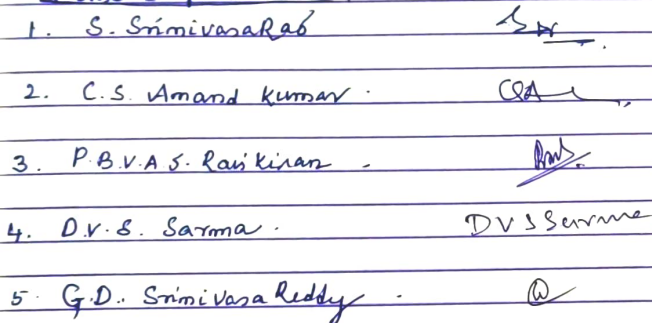 1. S. SrinivasaRao
2. C.S. Anand Kumar.
3. P.B.V.A.S. RaviKiran -
4. D.V.S. Sarma. DVSSarma
5. G.D. Srinivasa Reddy.